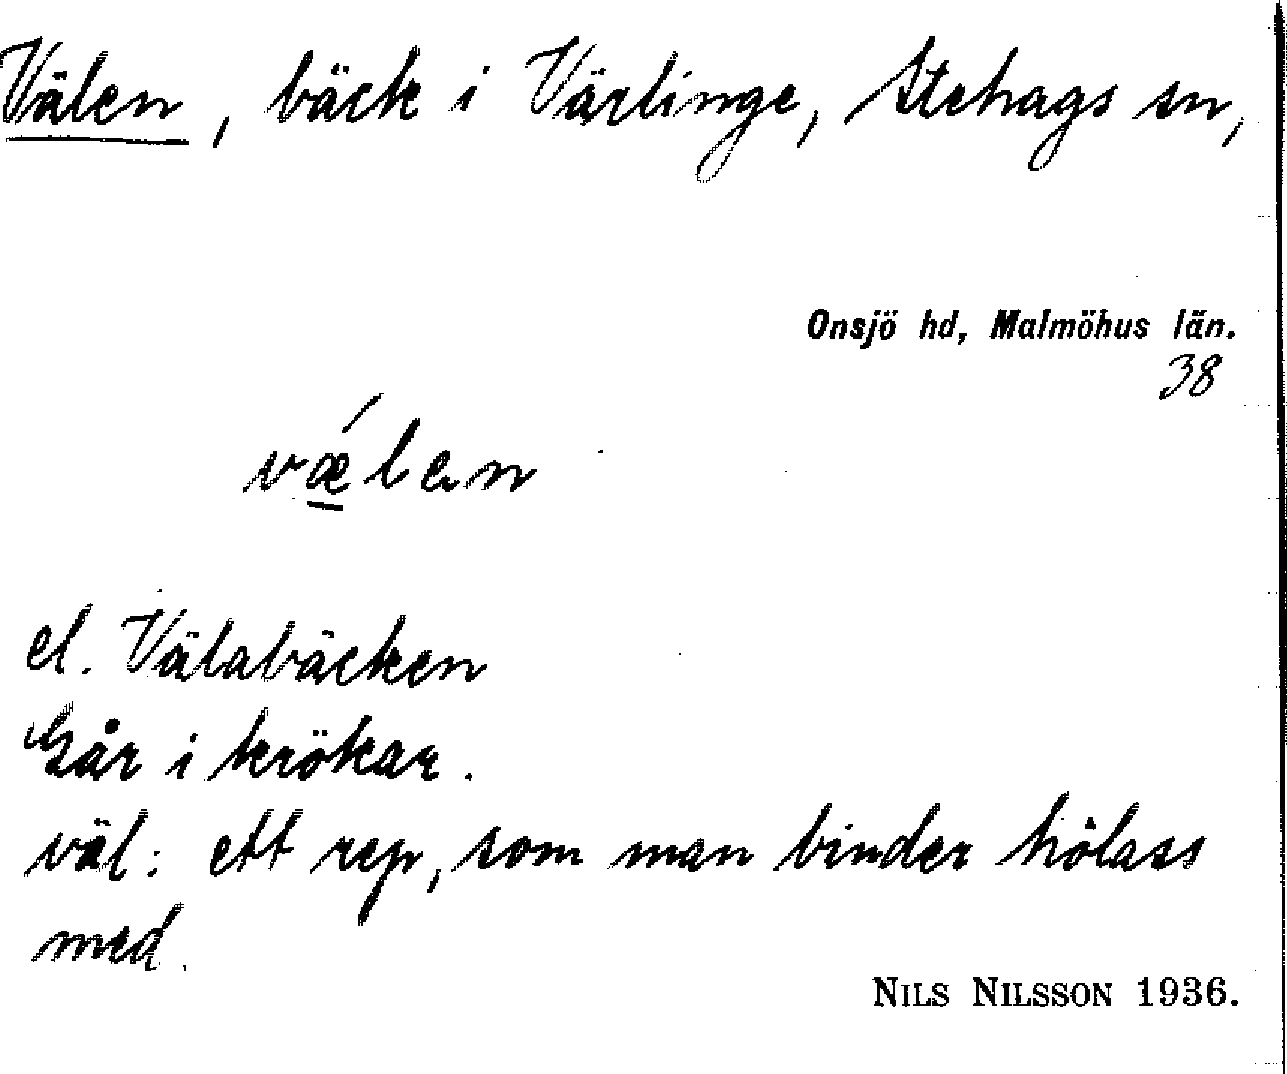 Välen, bäck i Värlinge, Stehags sn,
Onsjö hd, Malmöhus län.
38
vǽ̲len
el. Välabäcken
Går i krökar.
väl: ett rep, som man binder hölass
med.
NILS NILSSON 1936.